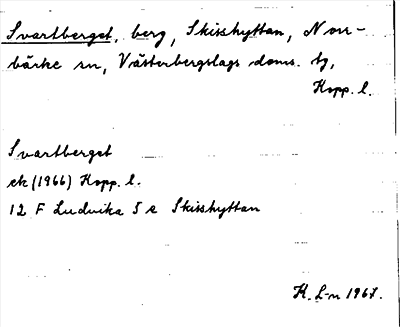 Svartberget, berg, Skisshyttan, Norr-
bärke sn, Västerbergslags doms. tg,
Kopp. l.
Svartberget
ek (1966) Kopp. l.
12 F Ludvika 5 e Skisshyttan
K. L-n 1967.